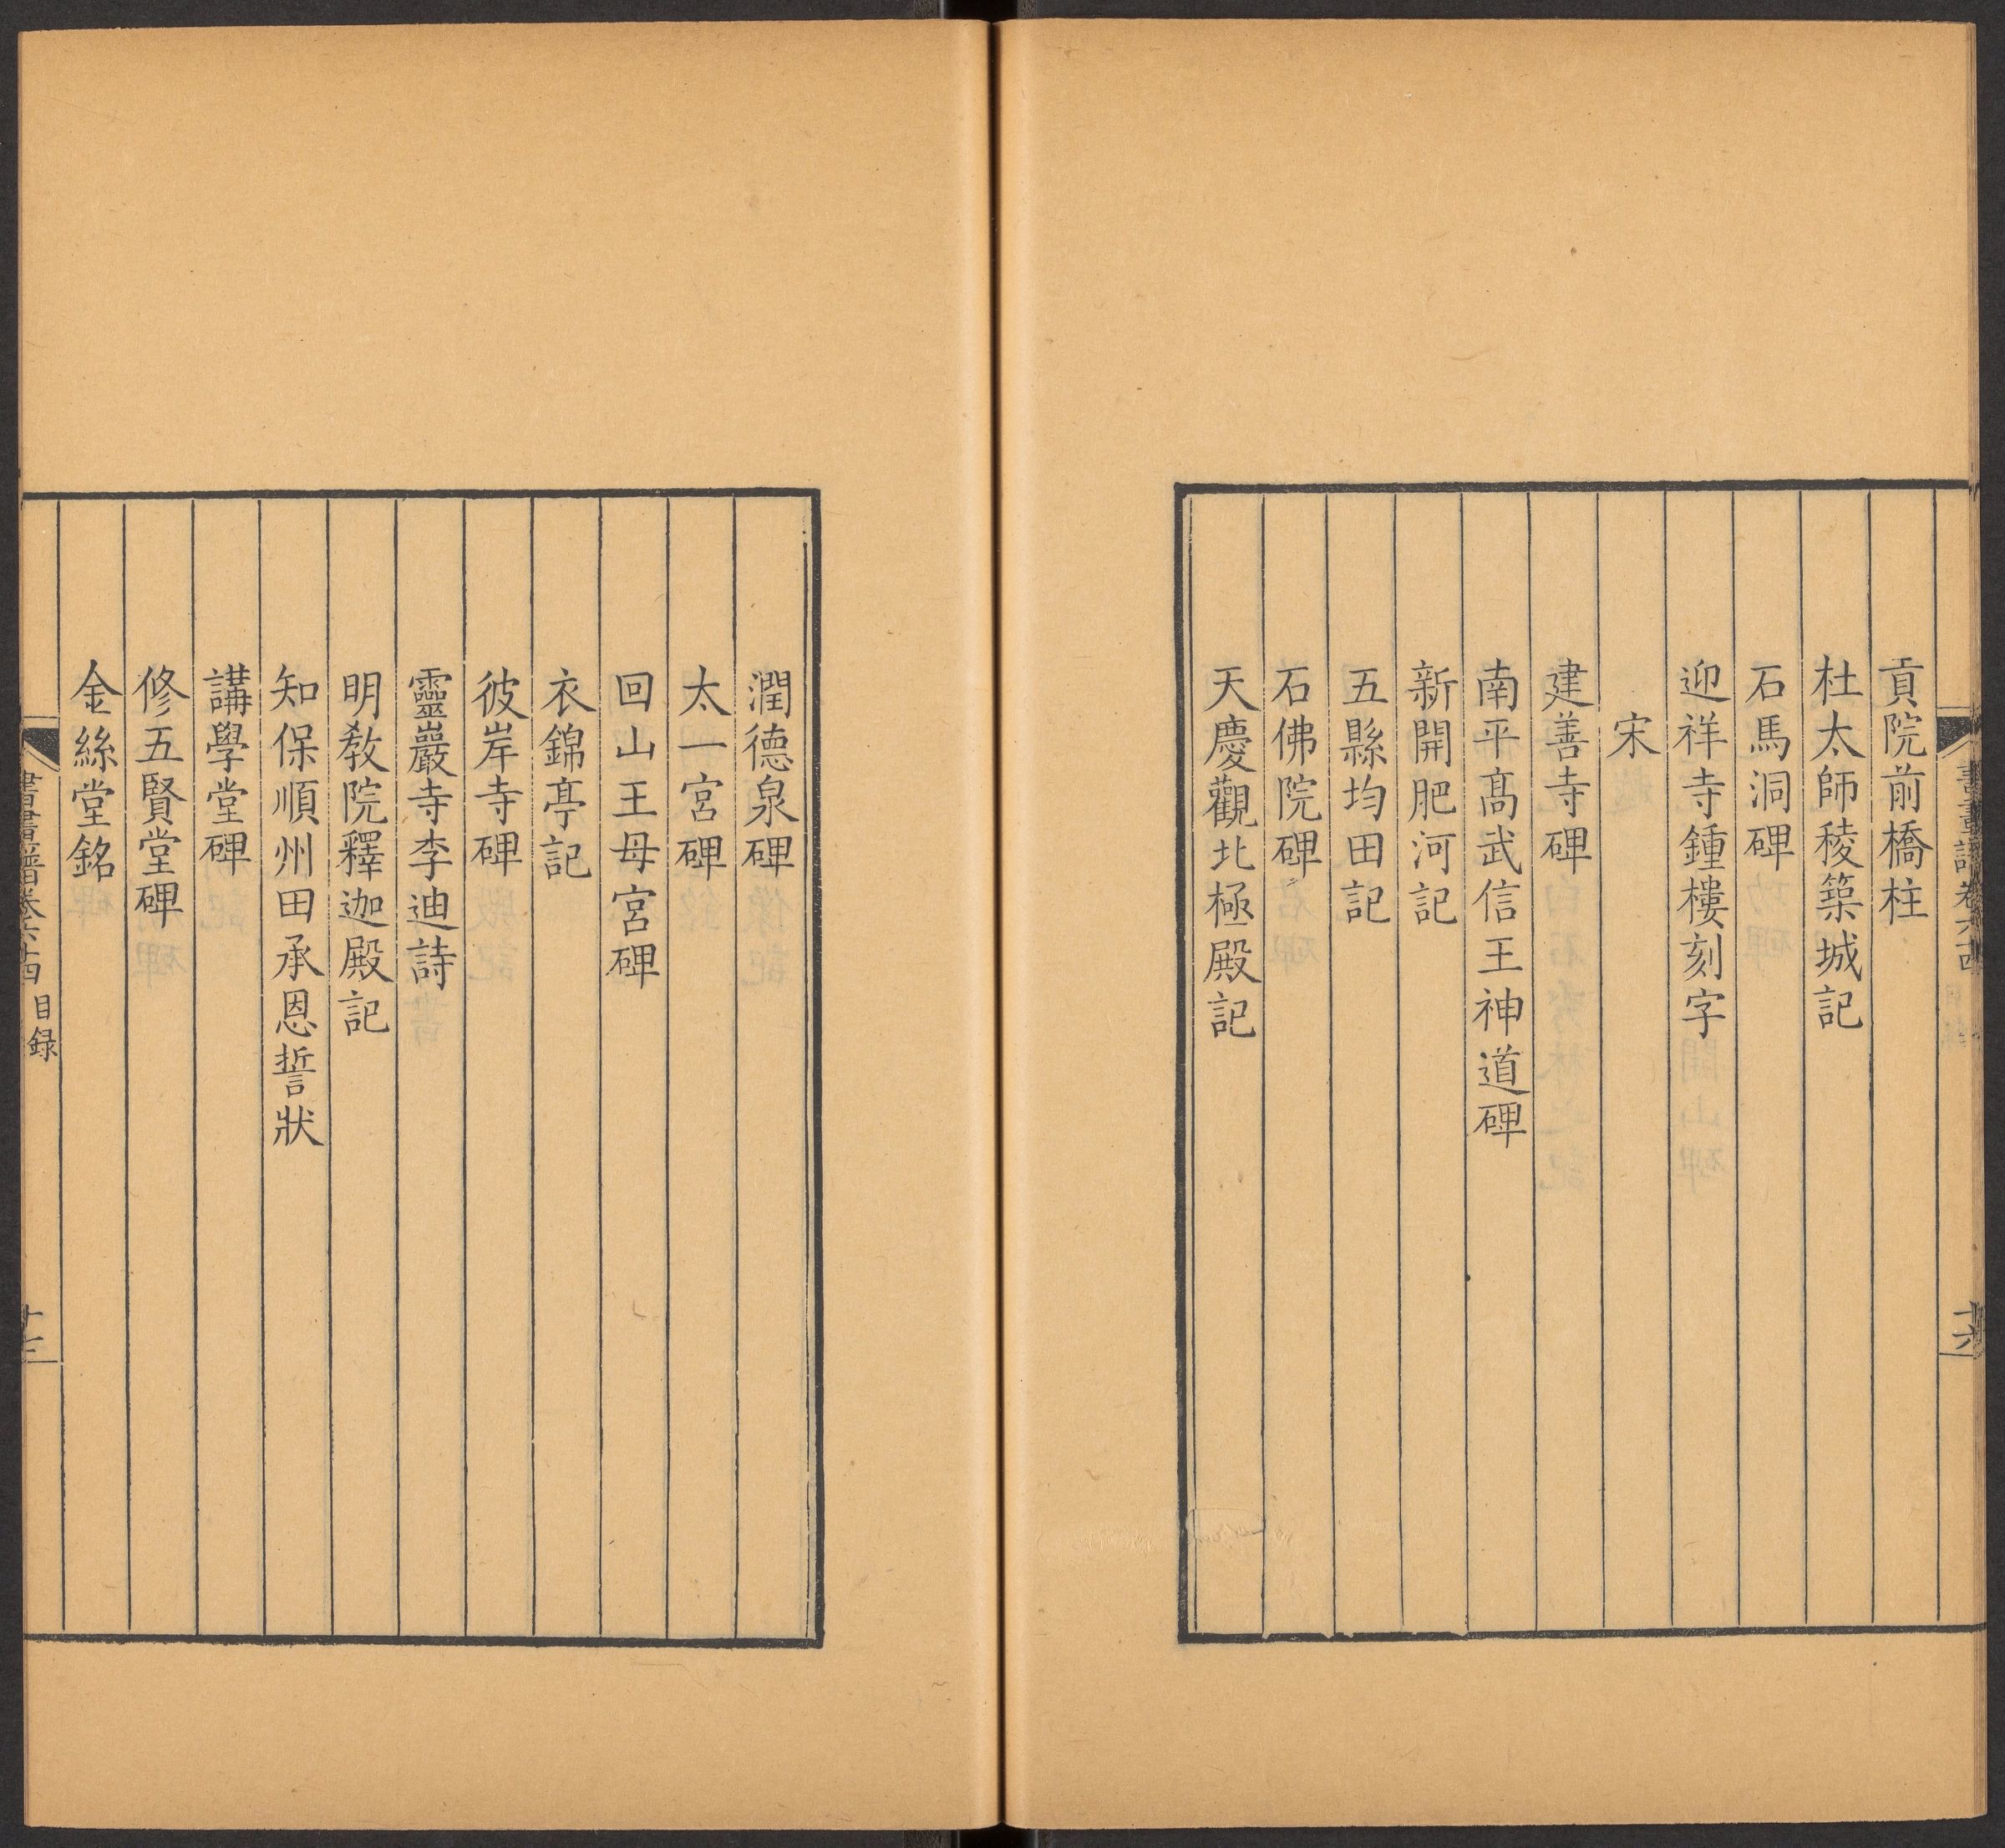 貢院前橋柱
杜太師稜築城記
石馬洞碑
迎祥寺鍾樓刻字
宋
建善寺碑
南平髙武信王神道碑
新開肥河記
五縣均田記
石佛院碑
天慶觀北極殿記
潤德泉碑
太一宮碑
回山王母宮碑
衣錦亭記
彼岸寺碑
靈巖寺李迪詩
明教院釋迦殿記
知保順州田承恩誓狀
講學堂碑
修五賢堂碑
金絲堂銘
目録